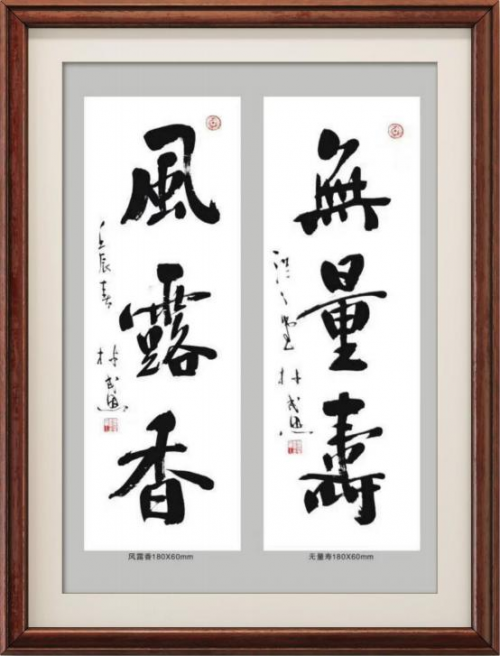 無量壽
風露香
壬辰春
无量寿180X60mm
风露香180X60mm